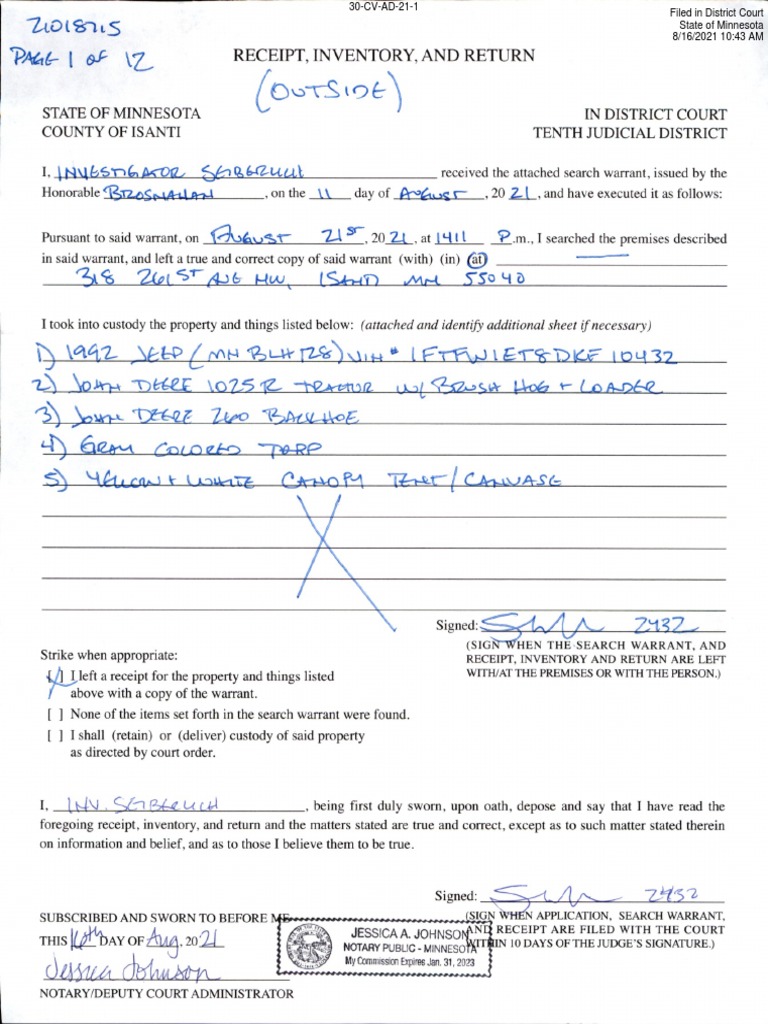 30-CV-AD-21-1
Filed in District Court
State of Minnesota
8/16/2021 10:43 AM
21018715
PAGE 1 OF 12
RECEIPT, INVENTORY, AND RETURN
(OUTSIDE)
STATE OF MINNESOTA
COUNTY OF ISANTI
IN DISTRICT COURT
TENTH JUDICIAL DISTRICT
I, INVESTIGATOR SEIBERLICH received the attached search warrant, issued by the
Honorable BROSNAHAN, on the 11 day of AUGUST, 2021, and have executed it as follows:
Pursuant to said warrant, on AUGUST 21ST, 2021, at 1411 P.m., I searched the premises described
in said warrant, and left a true and correct copy of said warrant (with) (in) (at)
318 261ST AVE NW, ISANTI MN 55040
I took into custody the property and things listed below: (attached and identify additional sheet if necessary)
1) 1992 JEEP (MN BLH 128) VIN # 1FTFW1ET8DKF10432
2) JOHN DEERE 1025R TRACTOR W/ BRUSH HOG + LOADER
3) JOHN DEERE 260 BACKHOE
4) GRAY COLORED TARP
5) YELLOW + WHITE CANOPY TENT / CANVASE
Signed: 2432
(SIGN WHEN THE SEARCH WARRANT, AND
RECEIPT, INVENTORY AND RETURN ARE LEFT
WITH/AT THE PREMISES OR WITH THE PERSON.)
Strike when appropriate:
[/] I left a receipt for the property and things listed
above with a copy of the warrant.
[ ] None of the items set forth in the search warrant were found.
[ ] I shall (retain) or (deliver) custody of said property
as directed by court order.
I, INV. SEIBERLICH, being first duly sworn, upon oath, depose and say that I have read the
foregoing receipt, inventory, and return and the matters stated are true and correct, except as to such matter stated therein
on information and belief, and as to those I believe them to be true.
Signed: 2432
(SIGN WHEN APPLICATION, SEARCH WARRANT,
AND RECEIPT ARE FILED WITH THE COURT
WITHIN 10 DAYS OF THE JUDGE'S SIGNATURE.)
SUBSCRIBED AND SWORN TO BEFORE ME
THIS 16th DAY OF Aug, 2021
Jessica Johnson
NOTARY/DEPUTY COURT ADMINISTRATOR
JESSICA A. JOHNSON
NOTARY PUBLIC - MINNESOTA
My Commission Expires Jan. 31, 2023